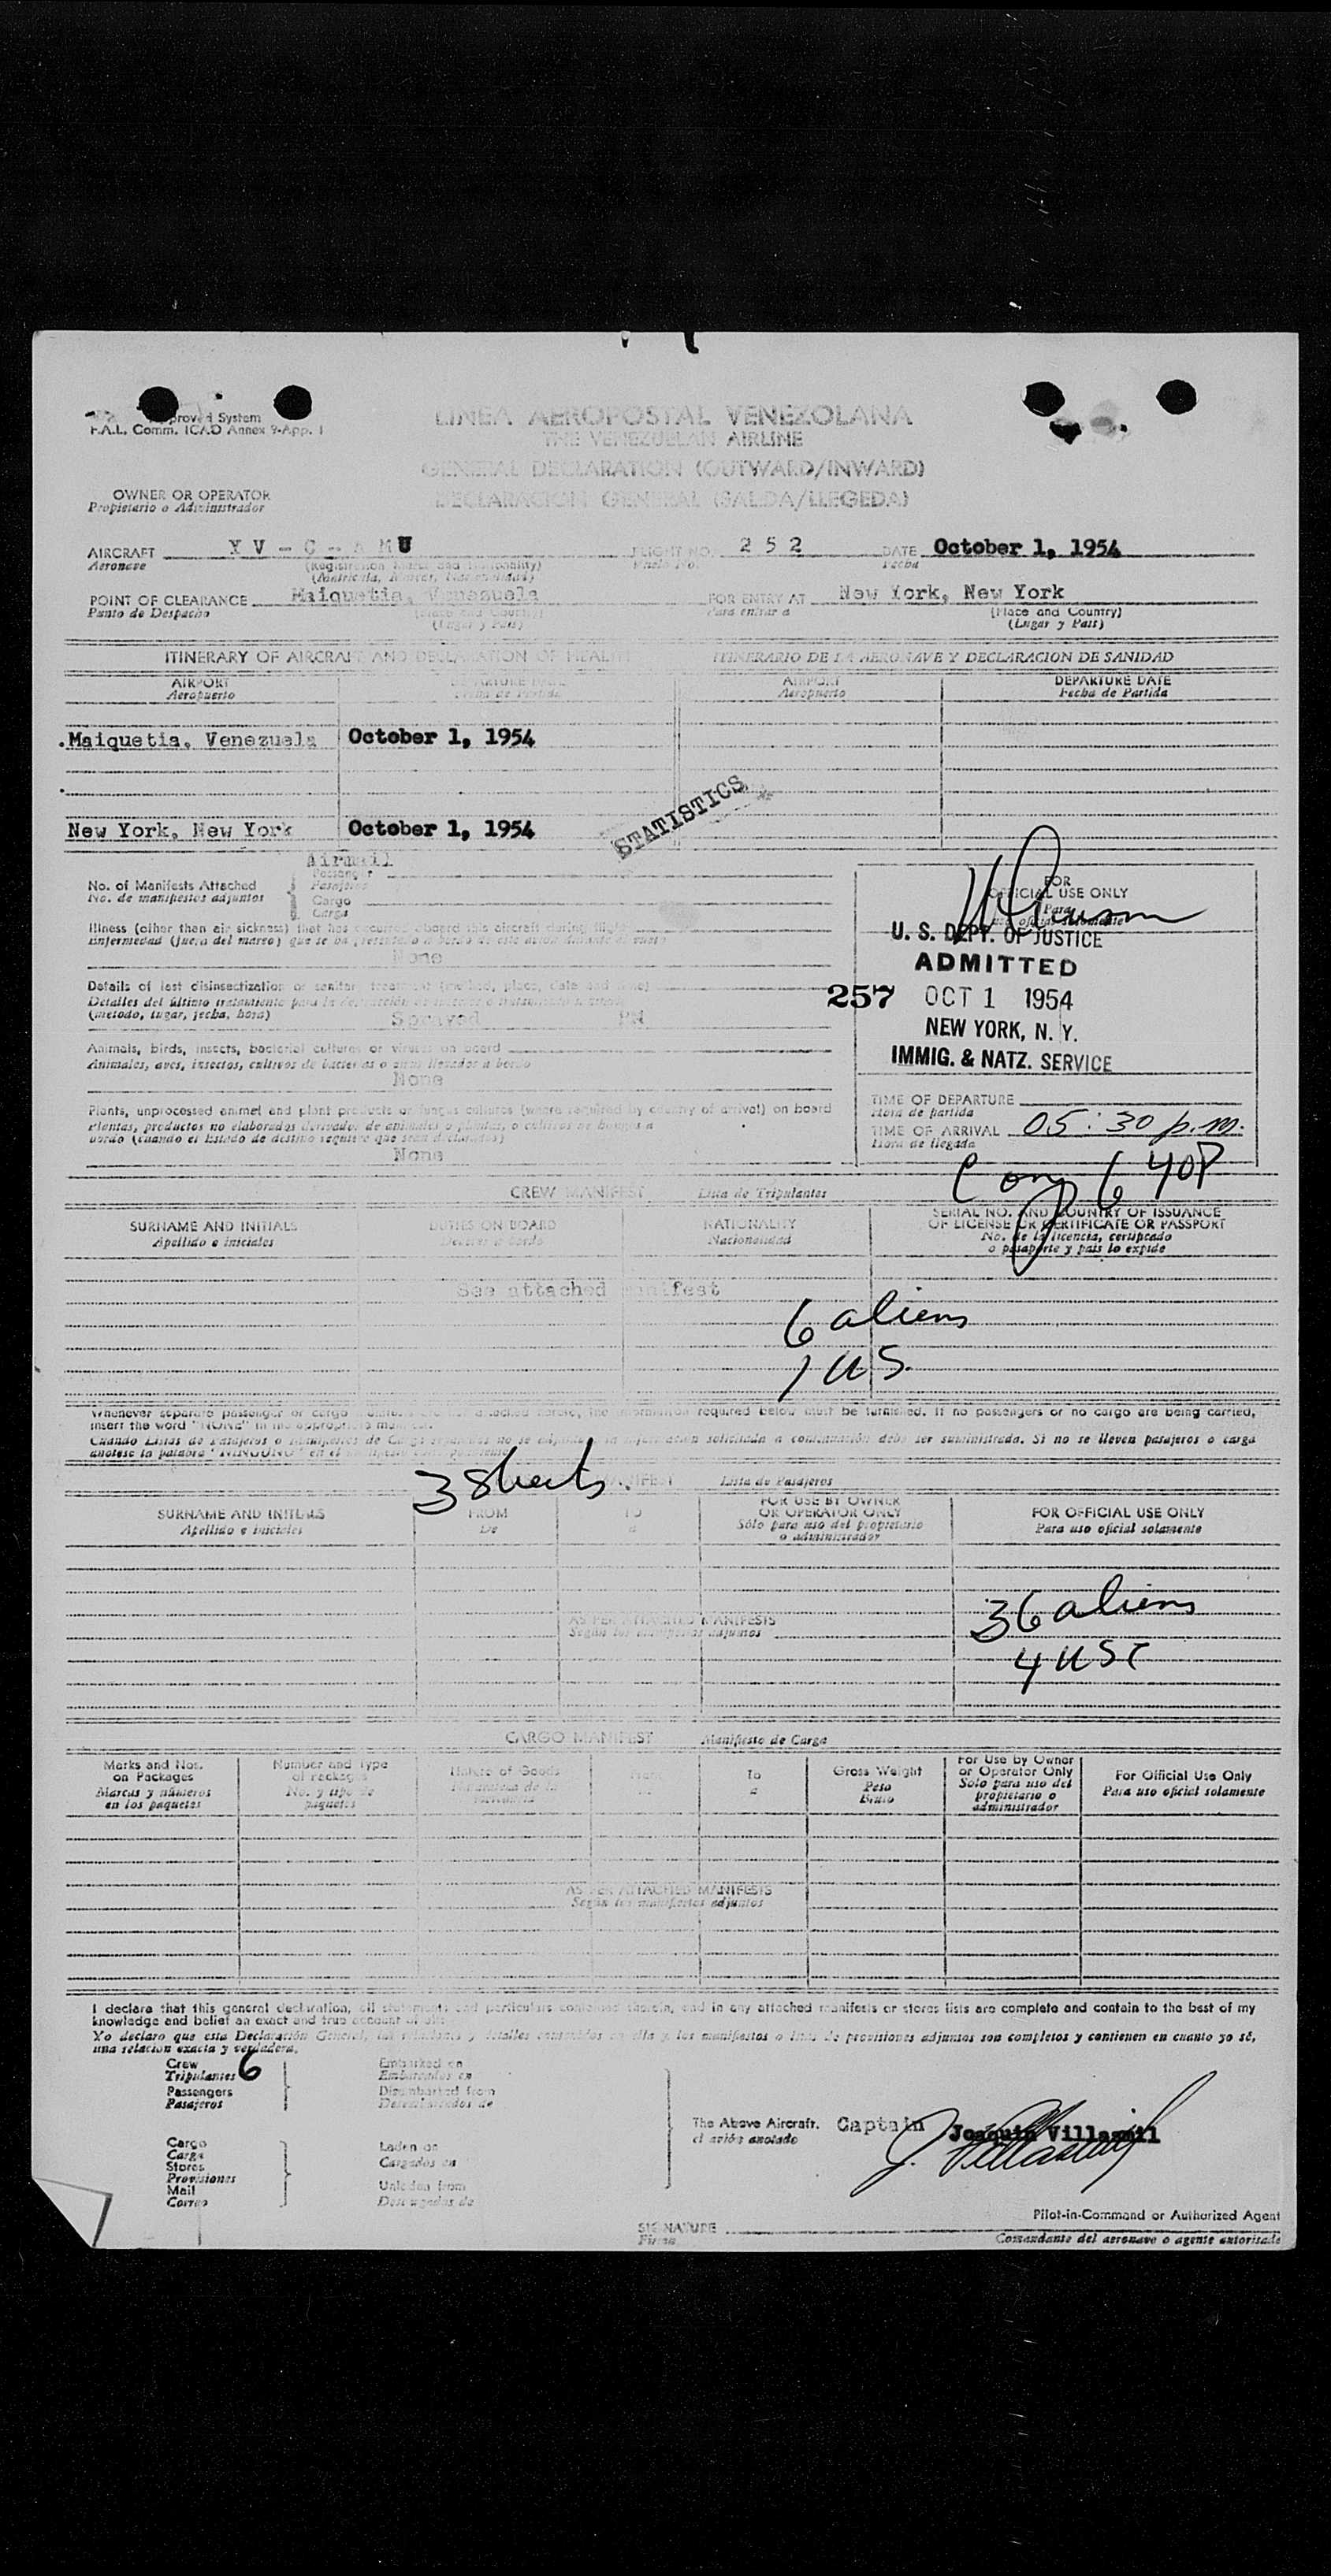 Approved System
F.A.L. Comm. ICAO Annex 9-App. 1
LINEA AEROPOSTAL VENEZOLANA
THE VENEZUELAN AIRLINE
GENERAL DECLARATION (OUTWARD/INWARD)
DECLARACION GENERAL (SALDA/LLEGEDA)
OWNER OR OPERATOR
Propietario o Administrador
AIRCRAFT YV-C-AMU FLIGHT NO. 252 DATE October 1, 1954
Aeronave (Registration Marks and Nationality) Vuelo No. Fecha
(Matricula, Marcas, Nacionalidad)
POINT OF CLEARANCE Maiquetia, Venezuela FOR ENTRY AT New York, New York
Punto de Despacho (Place and Country) Para entrar a (Place and Country)
(Lugar y Pais) (Lugar y Pais)
ITINERARY OF AIRCRAFT AND DECLARATION OF HEALTH ITINERARIO DE LA AERONAVE Y DECLARACION DE SANIDAD
AIRPORT DEPARTURE DATE AIRPORT DEPARTURE DATE
Aeropuerto Fecha de Partida Aeropuerto Fecha de Partida
Maiquetia, Venezuela October 1, 1954
STATISTICS
New York, New York October 1, 1954
Airmail
Passenger
No. of Manifests Attached Pasajeros
No. de manifiestos adjuntos Cargo
Carga
FOR
OFFICIAL USE ONLY
Para
uso oficial solamente
Illness (other than air sickness) that has occurred aboard this aircraft during flight
Enfermedad (fuera del mareo) que se ha presentado a bordo de este avion durante el vuelo
None
U. S. DEPT. OF JUSTICE
ADMITTED
257 OCT 1 1954
NEW YORK, N. Y.
IMMIG. & NATZ. SERVICE
Details of last disinsectization or sanitary treatment (method, place, date and time)
Detalles del último tratamiento para la
(metodo, lugar, fecha, hora)
Sprayed PN
Animals, birds, insects, bacterial cultures or viruses on board
Animales, aves, insectos, cultivos de bacterias o virus llevados a bordo
None
Plants, unprocessed animal and plant products or fungus cultures (where required by country of arrival) on board
Plantas, productos no elaborados derivados de animales o plantas, o cultivos de hongos a
bordo (cuando el Estado de destino requiere que sean declarados)
None
TIME OF DEPARTURE
Hora de partida
TIME OF ARRIVAL 05:30 p.m.
Hora de llegada
640P
CREW MANIFEST Lista de Tripulantes
SURNAME AND INITIALS DUTIES ON BOARD NATIONALITY SERIAL NO. AND COUNTRY OF ISSUANCE
Apellido e iniciales Deberes a bordo Nacionalidad OF LICENSE OR CERTIFICATE OR PASSPORT
No. de la licencia, certificado
o pasaporte y pais lo expide
See attached manifest
6 aliens
1 US
Whenever separate passenger or cargo manifests are not attached hereto, the information required below must be furnished. If no passengers or no cargo are being carried,
insert the word "NONE" in the appropriate manifest.
Cuando Listas de Pasajeros o Manifiestos de Carga separados no se adjunten, la información solicitada a continuación debe ser suministrada. Si no se lleven pasajeros o carga
anotese la palabra "NINGUNO" en el
3 Sheets MANIFEST Lista de Pasajeros
SURNAME AND INITIALS FROM TO FOR USE BY OWNER OR OPERATOR ONLY FOR OFFICIAL USE ONLY
Apellido e iniciales De a Sólo para uso del propietario o administrador Para uso oficial solamente
AS PER ATTACHED MANIFESTS
Según los manifiestos adjuntos
36 aliens
4 USC
CARGO MANIFEST Manifiesto de Carga
Marks and Nos. on Packages Number and Type of Packages Nature of Goods From To Gross Weight For Use by Owner or Operator Only For Official Use Only
Marcas y números en los paquetes No. y tipo de paquetes a Peso Bruto Solo para uso del propietario o administrador Para uso oficial solamente
AS PER ATTACHED MANIFESTS
Según los manifiestos adjuntos
I declare that this general declaration, all statements and particulars contained therein, and in any attached manifests or stores lists are complete and contain to the best of my
knowledge and belief an exact and true account of all:
Yo declaro que esta Declaración General, las relaciones y detalles contenidos en ella y los manifiestos o lista de provisiones adjuntos son completos y contienen en cuanto yo sé,
una relación exacta y verdadera.
Crew Embarked on
Tripulantes 6 Embarcados en
Passengers Disembarked from
Pasajeros Desembarcados de
The Above Aircraft. Captain Joaquin Villasmil
el avión anotado
Cargo Laden on
Carga Cargados en
Stores
Provisiones
Mail Unladen from
Correo Descargados de
Pilot-in-Command or Authorized Agent
SIGNATURE
Firma Comandante del aeronave o agente autorizado